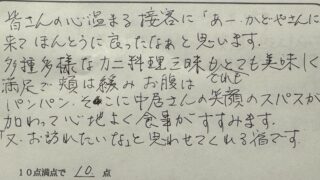 皆さんの心温まる接客に「あー、かどやさんに
来てほんとうに良ったなぁと思います。
多種多様なカニ料理三昧もとても美味しく
満足で頬は緩みお腹はとれも
パンパン、そこに中居さんの笑顔のスパスが
加わって心地よく食事がすすみます。
「又、お訪れたいな」と思わせてくれる宿です。
10点満点で 10 点